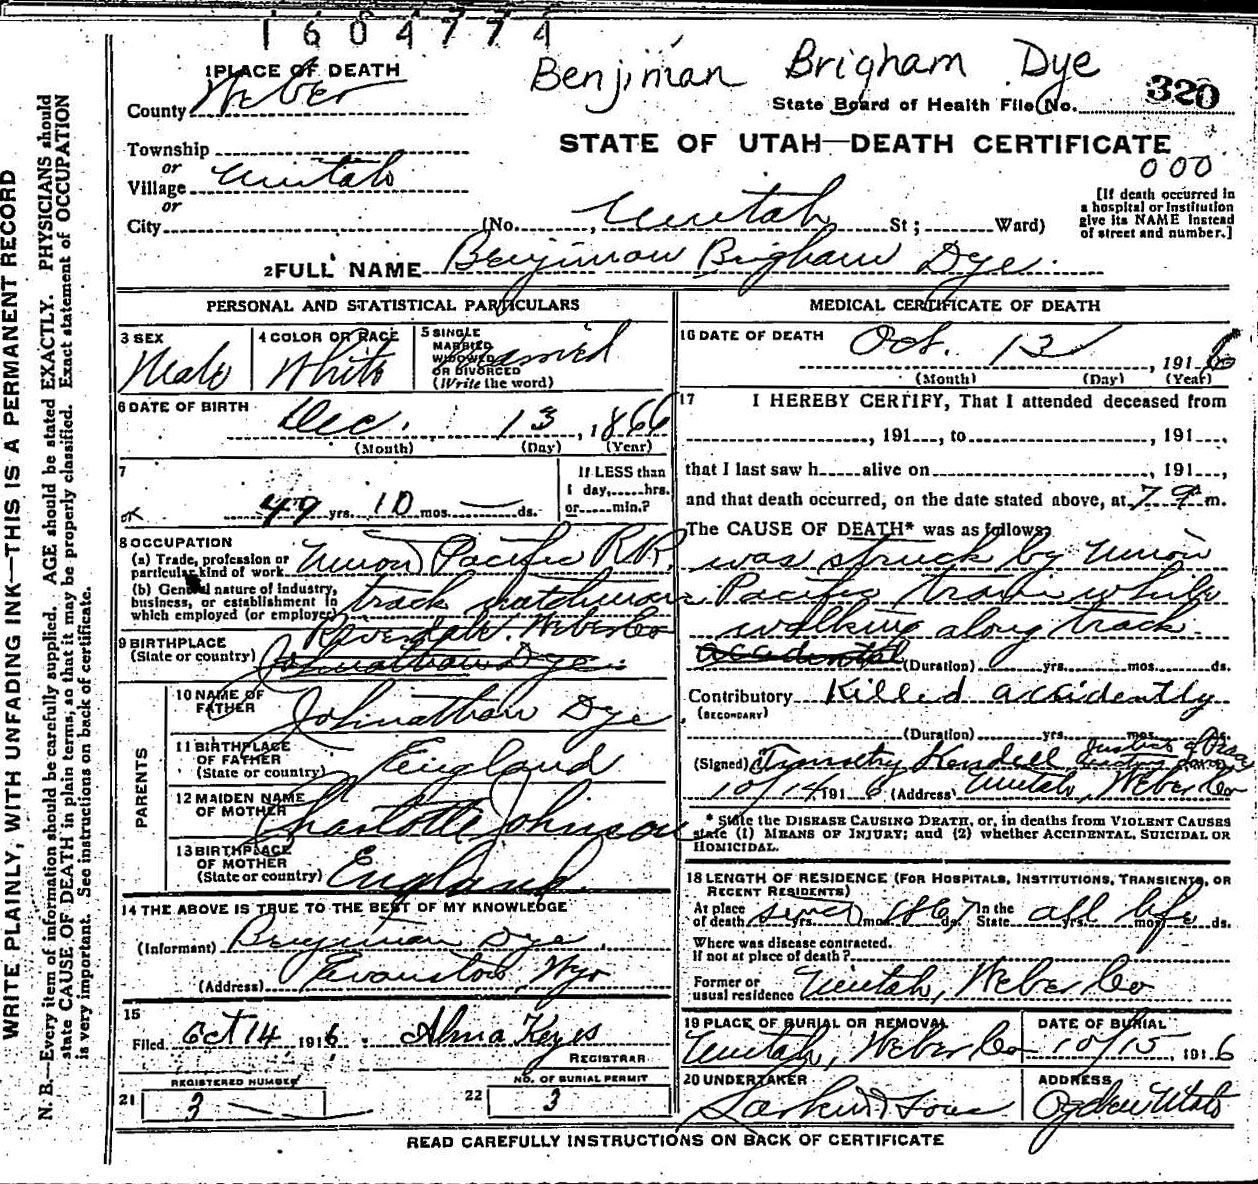 1604774
Benjiman Brigham Dye
1 PLACE OF DEATH
County Weber
State Board of Health File No. 320
STATE OF UTAH—DEATH CERTIFICATE
000
Township
or
Village Uintah
or
City (No. , Uintah St ; Ward)
[If death occurred in
a hospital or institution
give its NAME instead
of street and number.]
2 FULL NAME Benjiman Brigham Dye
PERSONAL AND STATISTICAL PARTICULARS
3 SEX
Male
4 COLOR OR RACE
White
5 SINGLE
MARRIED
WIDOWED
OR DIVORCED
(Write the word)
Married
6 DATE OF BIRTH
Dec. 13, 1866
(Month) (Day) (Year)
7
49 yrs. 10 mos. — ds.
If LESS than
1 day, hrs.
or min.?
8 OCCUPATION
(a) Trade, profession or
particular kind of work Union Pacific R.R.
(b) General nature of industry,
business, or establishment in
which employed (or employer) track watchman
9 BIRTHPLACE
(State or country) Riverdale. Weber Co
Johnathan Dye
PARENTS
10 NAME OF
FATHER Johnathan Dye
11 BIRTHPLACE
OF FATHER
(State or country) England
12 MAIDEN NAME
OF MOTHER Charlotte Johnson
13 BIRTHPLACE
OF MOTHER
(State or country) England
14 THE ABOVE IS TRUE TO THE BEST OF MY KNOWLEDGE
(Informant) Benjiman Dye
(Address) Evanston, Wyo
15
Filed Oct 14 1916. Alma Keyes
REGISTRAR
21 REGISTERED NUMBER
3
22 NO. OF BURIAL PERMIT
3
MEDICAL CERTIFICATE OF DEATH
16 DATE OF DEATH
Oct. 13, 1916
(Month) (Day) (Year)
17 I HEREBY CERTIFY, That I attended deceased from
, 191 , to , 191 ,
that I last saw h alive on , 191 ,
and that death occurred, on the date stated above, at 7 P m.
The CAUSE OF DEATH* was as follows:
was struck by Union
Pacific train while
walking along track.
accidental (Duration) yrs. mos. ds.
Contributory Killed accidently
(SECONDARY)
(Duration) yrs. mos. ds.
(Signed) Timothy Kendell Justice of Peace
10/14, 1916 (Address) Uintah, Weber Co
* State the DISEASE CAUSING DEATH, or, in deaths from VIOLENT CAUSES
state (1) MEANS OF INJURY; and (2) whether ACCIDENTAL, SUICIDAL OR
HOMICIDAL.
18 LENGTH OF RESIDENCE (FOR HOSPITALS, INSTITUTIONS, TRANSIENTS, OR
RECENT RESIDENTS)
At place
of death since yrs. mos. 1867 ds. In the
State all life yrs. mos. ds.
Where was disease contracted.
if not at place of death?
Former or
usual residence Uintah, Weber Co
19 PLACE OF BURIAL OR REMOVAL
Uintah, Weber Co
DATE OF BURIAL
10/15, 1916
20 UNDERTAKER
Larkin & Sons
ADDRESS
Ogden Utah
READ CAREFULLY INSTRUCTIONS ON BACK OF CERTIFICATE
WRITE PLAINLY, WITH UNFADING INK—THIS IS A PERMANENT RECORD
N. B.—Every item of information should be carefully supplied. AGE should be stated EXACTLY. PHYSICIANS should
state CAUSE OF DEATH in plain terms, so that it may be properly classified. Exact statement of OCCUPATION
is very important. See instructions on back of certificate.